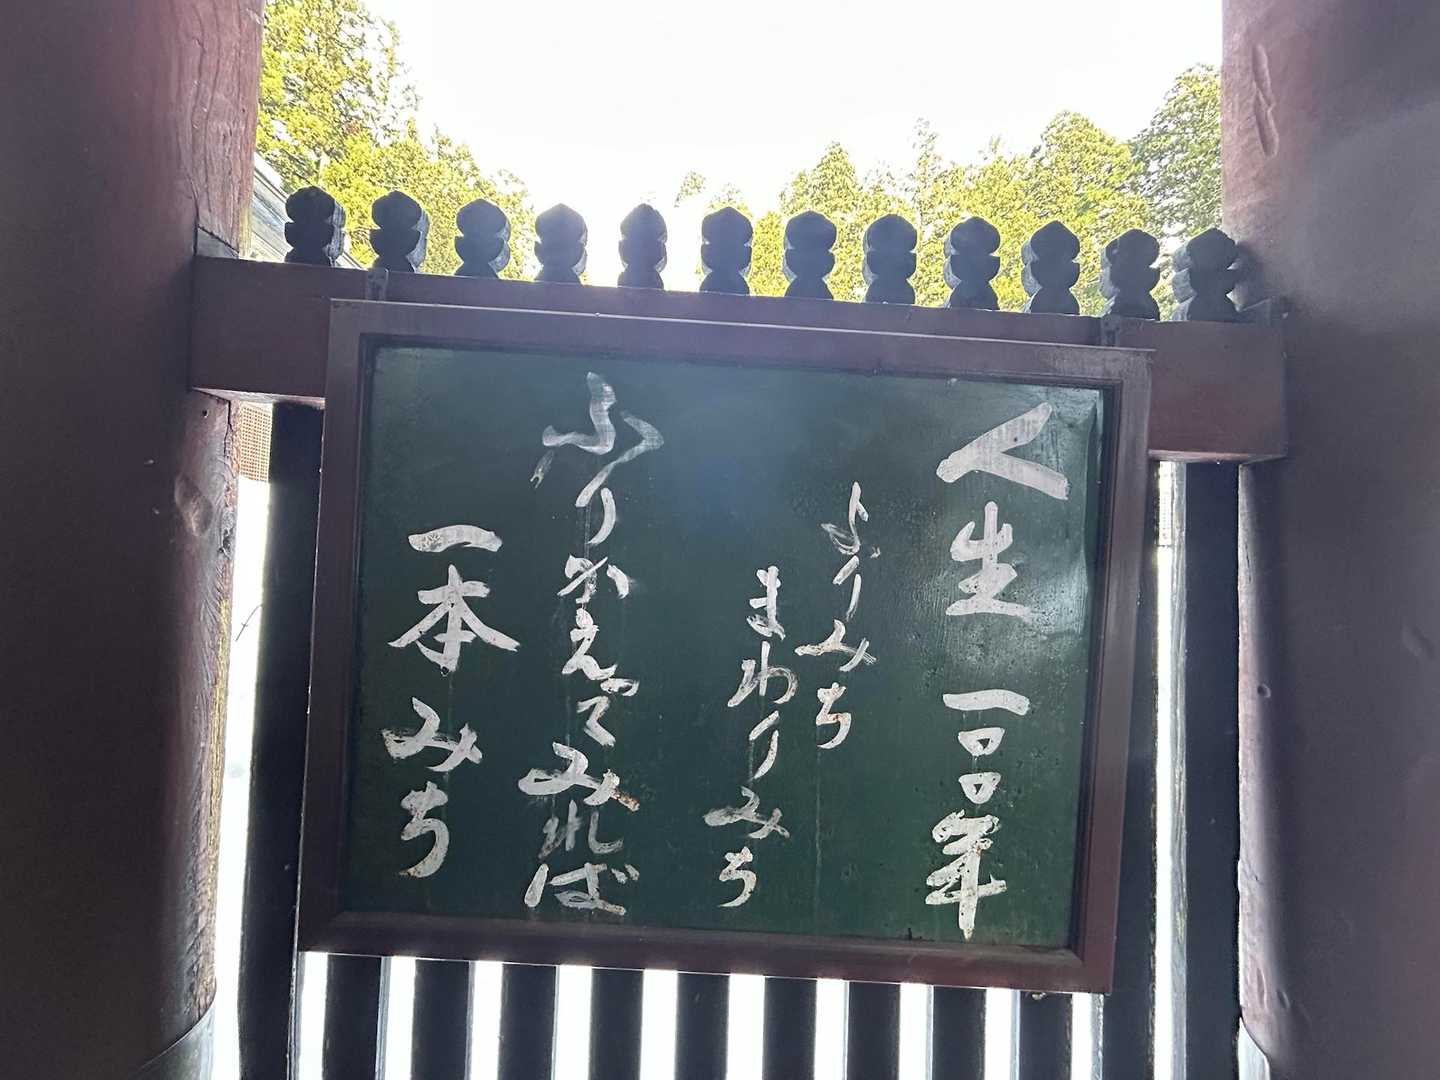 人生一〇〇年
よりみち
まわりみち
ふりかえってみれば
一本みち